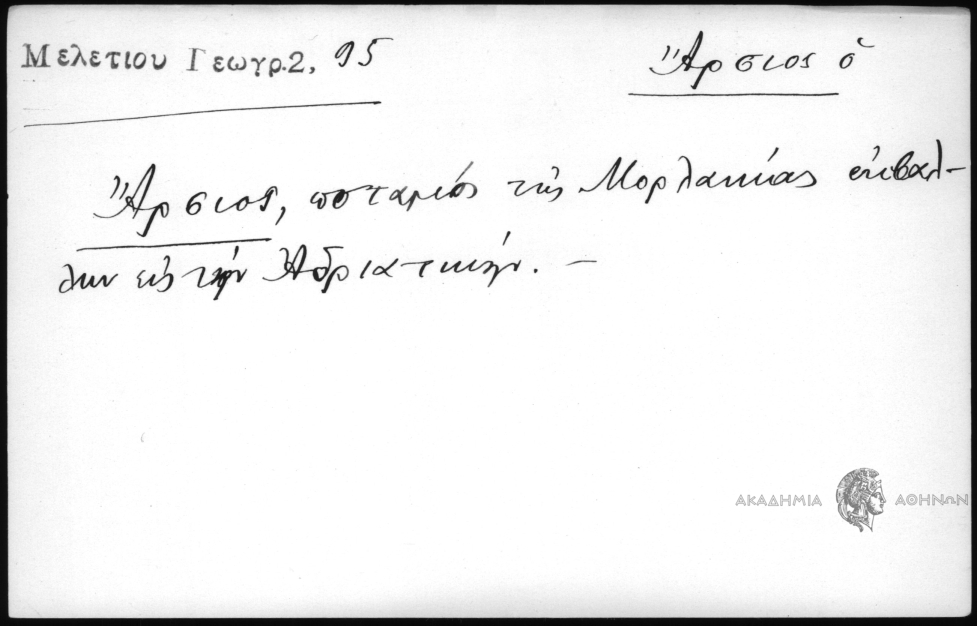 Μελετιου Γεωγρ.2, 95
Ἄρσιος ὁ
Ἄρσιος, ποταμὸς τῆς Μορλακίας ἐκβάλ-
λων εἰς τὴν Ἀδριατικήν. –
ΑΚΑΔΗΜΙΑ ΑΘΗΝΩΝ